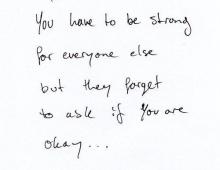 You have to be strong
for everyone else
but they forget
to ask if you are
okay...